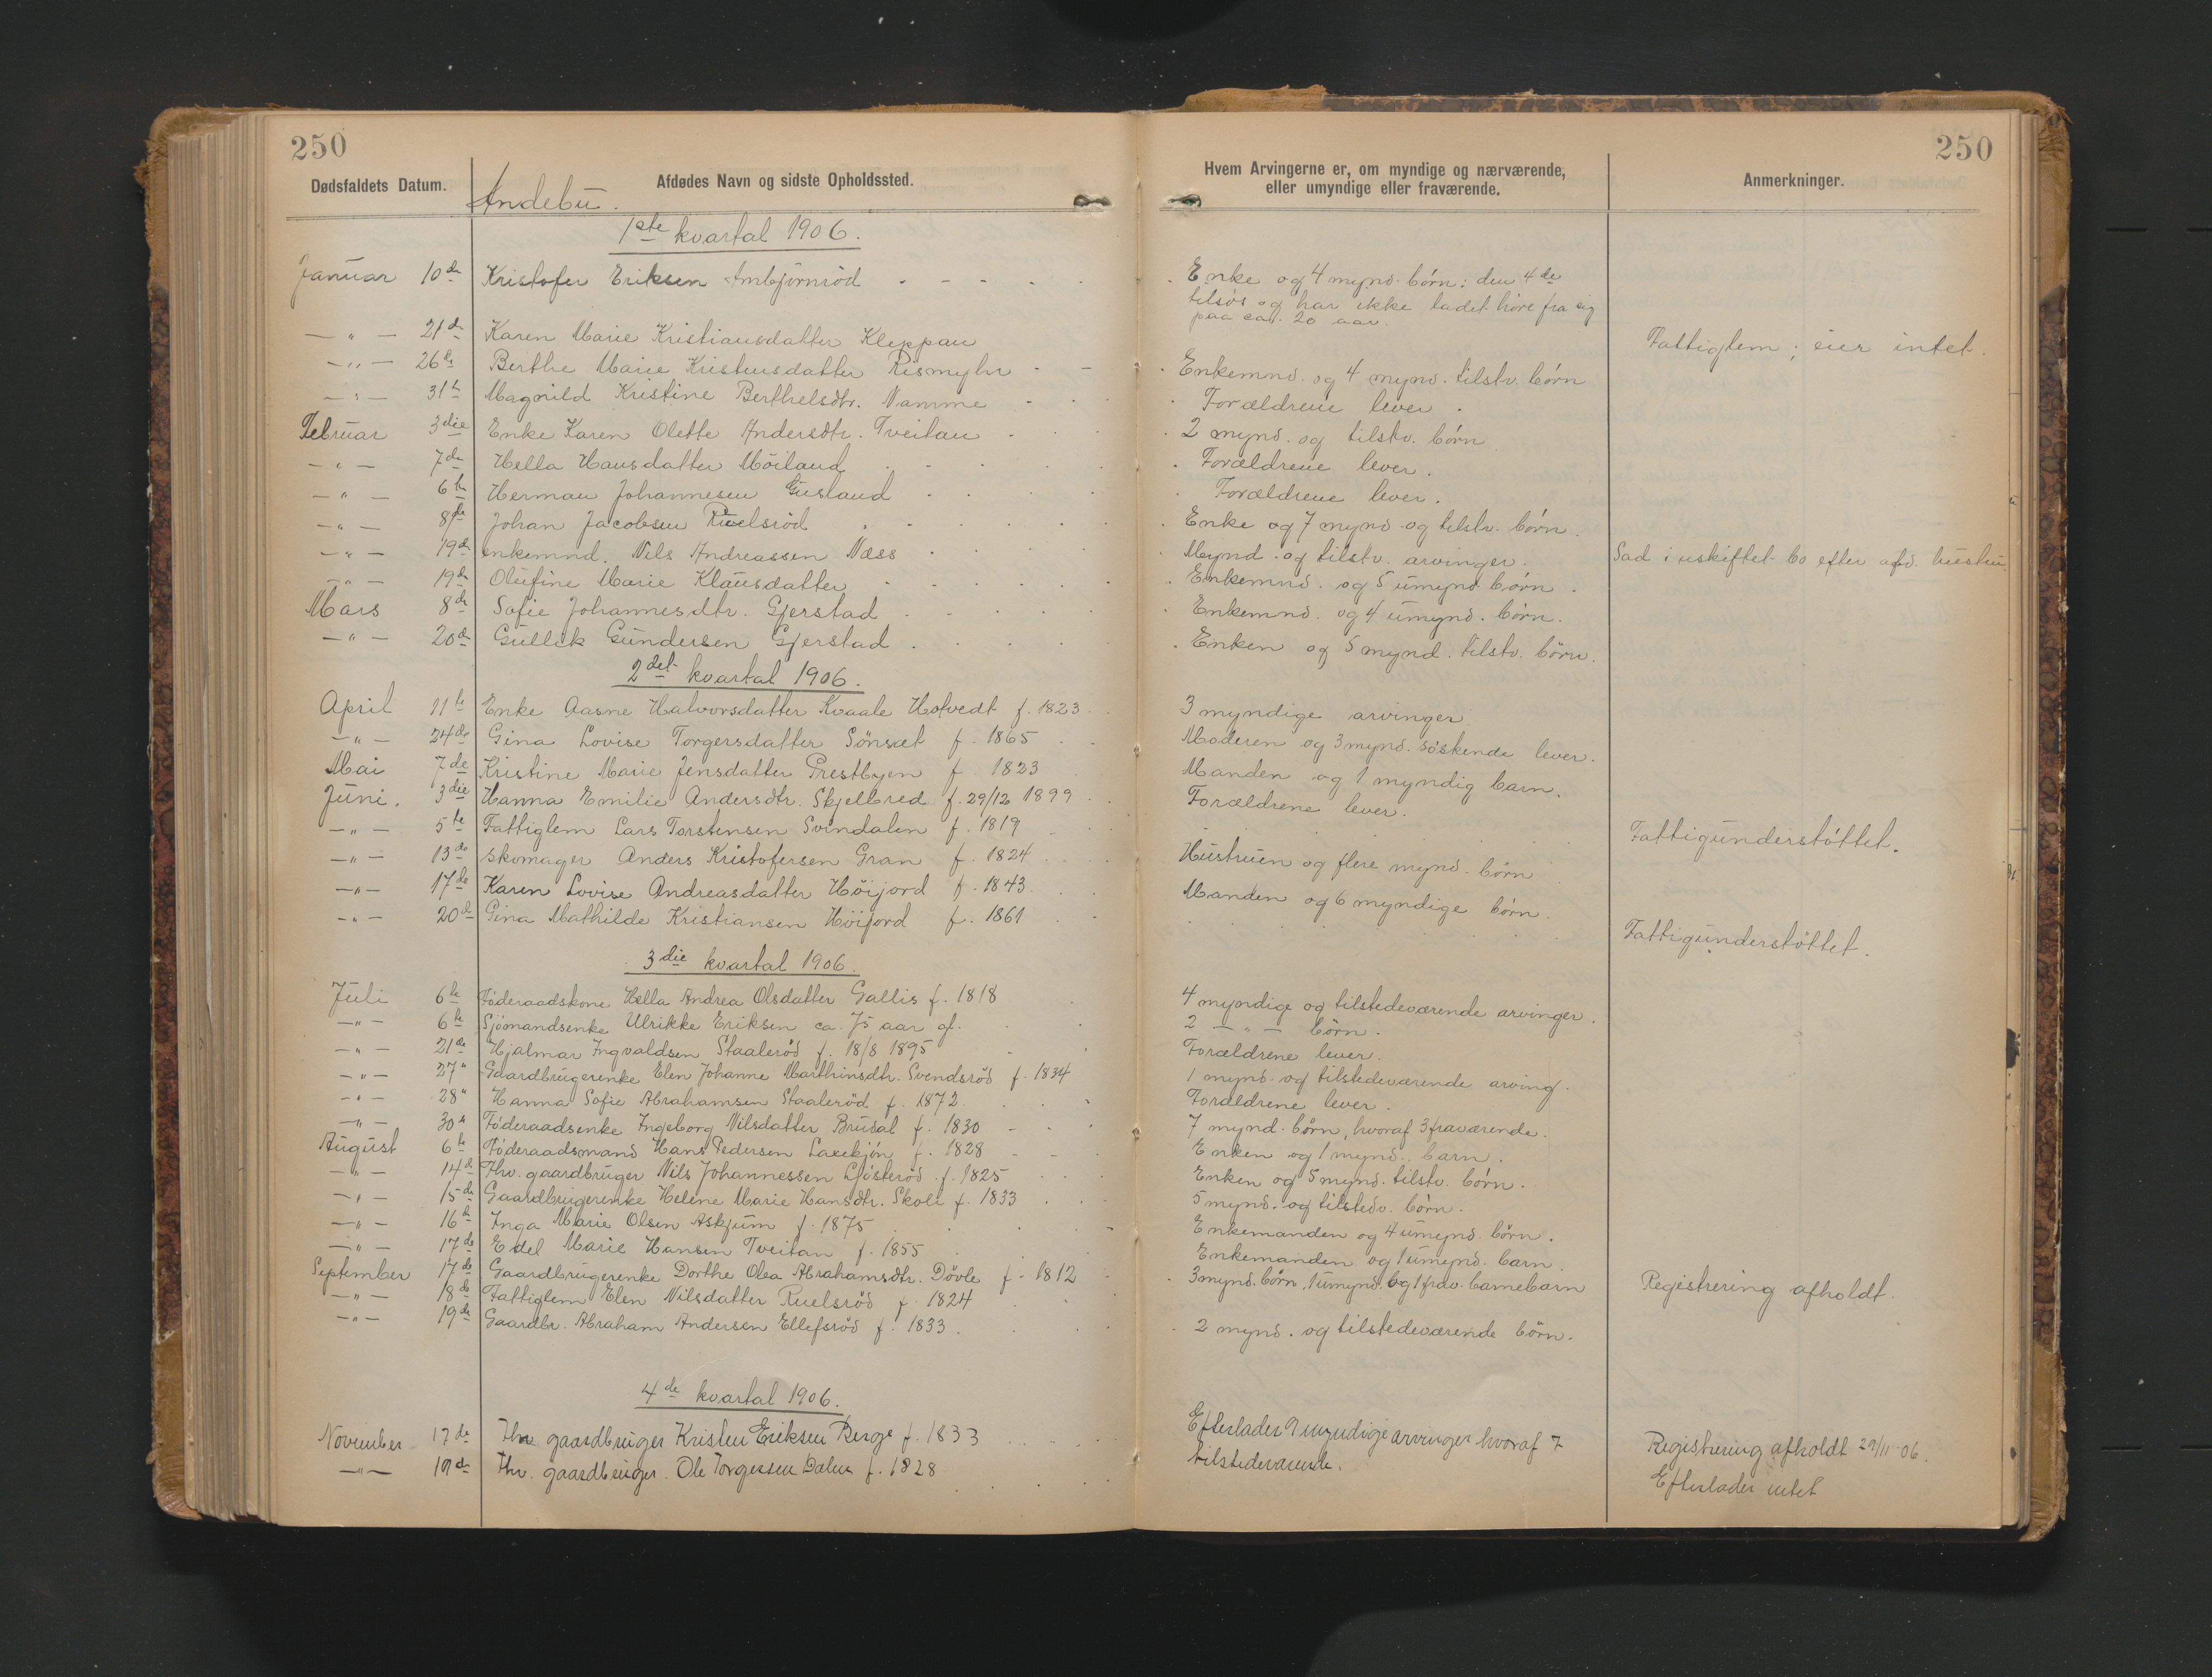 250
Dødsfaldets Datum.
Afdødes Navn og sidste Opholdssted.
Andebu.
1ste kvartal 1906.
Januar 10de Kristofer Eriksen Ambjörnröd
— " — 21de Karen Marie Kristiansdatter Kleppan
— " — 26de Berthe Marie Kristensdatter Rismyhr
— " — 31te Magnild Kristine Berthelsdtr. Namme
Februar 3die Enke Karen Olette Andersdtr. Tveitan
— " — 7de Hella Hansdatter Möiland
— " — 6te Herman Johannesen Gusland
— " — 8de Johan Jacobsen Ruelsröd
— " — 19de enkemnd. Nils Andreassen Næss
— " — 19de Olufine Marie Klausdatter
Mars 8de Sofie Johannesdtr. Gjerstad
— " — 20de Gullek Gundersen Gjerstad
2det kvartal 1906.
April 11te Enke Aasne Halvorsdatter Kvaale Hotvedt f. 1823
— " — 24de Gina Lovise Torgersdatter Sönset f. 1865
Mai 7de Kristine Marie Jensdatter Prestbyen f. 1823
Juni. 3die Hanna Emilie Andersdtr. Skjelbred f. 29/12 1899
— " — 5te Fattiglem Lars Torstensen Svindalen f. 1819
— " — 13de Skomager Anders Kristofersen Gran f. 1824
— " — 17de Karen Lovise Andreasdatter Höijord f. 1843
— " — 20de Gina Mathilde Kristiansen Höijord f. 1861
3die kvartal 1906.
Juli 6te Föderaadskone Hella Andrea Olsdatter Gallis f. 1818
— " — 6te Sjömandsenke Ulrikke Eriksen ca. 75 aar gl.
— " — 21de Hjalmar Ingvaldsen Staaleröd f. 18/8 1895
— " — 27" Gaardbrugerenke Elen Johanne Marthinsdtr. Svendsröd f. 1834
— " — 28" Hanna Sofie Abrahamsen Staaleröd f. 1872
— " — 30" Föderaadsenke Ingeborg Nilsdatter Brudal f. 1830
August 6te Föderaadsmand Hans Pedersen f. 1828
— " — 14de Fhv. gaardbruger Nils Johannessen Ljösteröd f. 1825
— " — 15de Gaardbrugerenke Helene Marie Hansdtr. Skoli f. 1833
— " — 16de Inga Marie Olsen Askjum f. 1875
— " — 17de Edel Marie Hansen Tveitan f. 1855
September 17de Gaardbrugerenke Dorthe Olea Abrahamsdtr. Dövle f. 1812
— " — 18de Fattiglem Elen Nilsdatter Ruelsröd f. 1824
— " — 19de Gaardbr. Abraham Andersen Ellefsröd f. 1833.
4de kvartal 1906.
November 17de Fhv. gaardbruger Kristen Eriksen Berge f. 1833
— " — 19de Fhv. gaardbruger. Ole Torgersen Dalen f. 1828
250
Hvem Arvingerne er, om myndige og nærværende,
eller umyndige eller fraværende.
Anmerkninger.
Enke og 4 mynd. börn: den 4de
tilsös og har ikke ladet höre fra sig
paa ca. 20 aar.
Fattiglem; eier intet.
Enkemnd. og 4 mynd. tilstv. börn
Forældrene lever.
2 mynd. og tilstv. börn
Forældrene lever.
Forældrene lever.
Enke og 7 mynd. og tilstv. börn.
Mynd. og tilstv. arvinger. Sad i uskiftet bo efter afd. hustru.
Enkemnd. og 5 umynd. börn.
Enkemnd. og 4 umynd. börn.
Enken og 5 mynd. tilstv. börn.
3 myndige arvinger
Moderen og 3 mynd. söskende lever.
Manden og 1 myndig barn.
Forældrene lever.
Fattigunderstöttet.
Hustruen og flere mynd. börn
Manden og 6 myndige börn.
Fattigunderstöttet.
4 myndige og tilstedeværende arvinger.
2 — " — börn.
Forældrene lever.
1 mynd. og tilstedeværende arving.
Forældrene lever.
7 mynd. börn, hvoraf 3 fraværende.
Enken og 1 mynd. barn.
Enken og 5 mynd. tilstv. börn.
5 mynd. og tilstedv. börn.
Enkemanden og 4 umynd. börn.
Enkemanden og 1 umynd. barn.
3 mynd. börn, 1 umynd. og 1 frav. barnebarn Registrering afholdt.
2 mynd. og tilstedeværende börn.
Efterlader 9 myndige arvinger hvoraf 7
tilstedeværende.
Registrering afholdt 29/11-06.
Efterlader intet